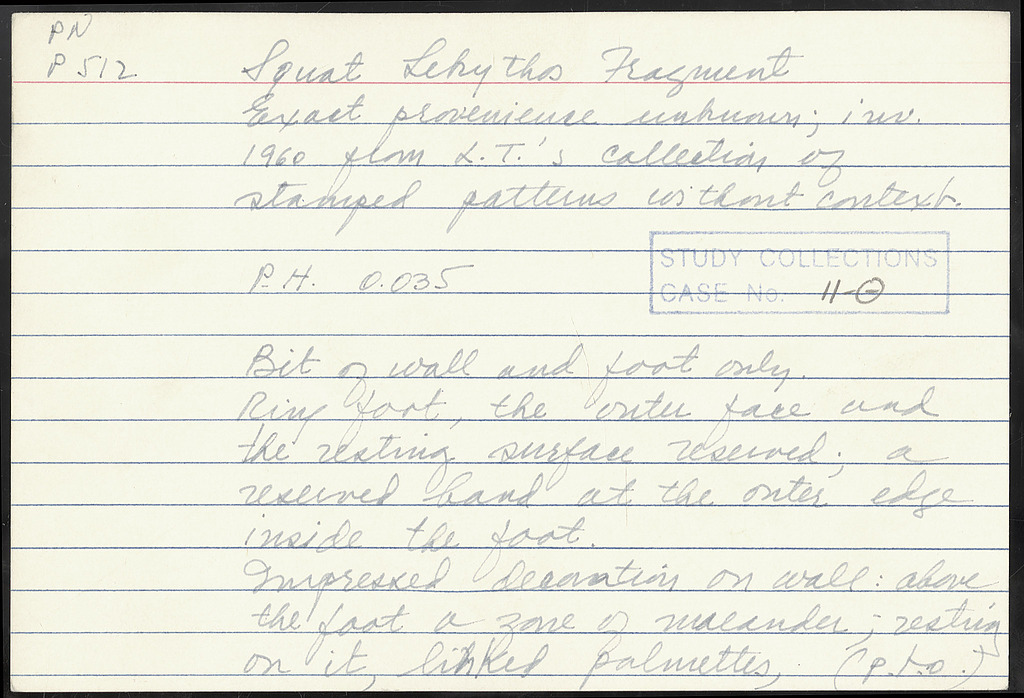 PN
P 512
Squat Lekythos Fragment
Exact provenience unknown; inv.
1960 from L.T.'s collection of
stamped patterns without context.
STUDY COLLECTIONS
P.H. 0.035
CASE No. 11-Θ
Bit of wall and foot only.
Ring foot, the outer face and
the resting surface reserved; a
reserved band at the outer edge
inside the foot.
Impressed decoration on wall: above
the foot a zone of maeander; resting
on it, linked palmettes, (p.t.o.)